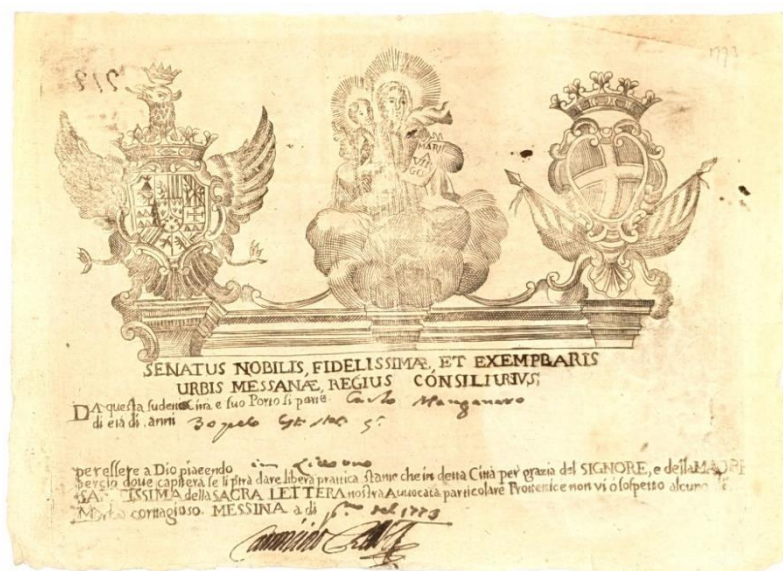 1773
213
MARI
VIR
GO
SENATUS NOBILIS, FIDELISSIMÆ, ET EXEMPBARIS
URBIS MESSANÆ, REGIUS CONSILIURIVS;
DA questa sudetta Città e suo Porto si parte Carlo Manganaro
di età di anni 30 pelo
per essere a Dio piacendo in
percio doue capitera se li ptrà dare libera prattica stante che in detta Città per grazia del SIGNORE, e della MADRE
SA TISSIMA della SACRA LETTERA nostra Auuocata particolare Protettrice non vi ò sospetto alcuno
Morbo contagioso. MESSINA a di del 1773